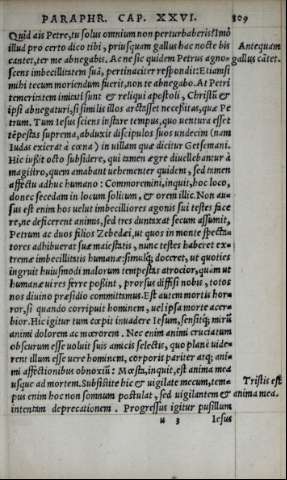 PARAPHR. CAP. XXVI. 809
Quid ais Petre, tu solus omnium non perturbaberis? Imò
illud pro certo dico tibi, priusquam gallus hac nocte bis
cantet, ter me abnegabis. Ac ne sic quidem Petrus agno-
scens imbecillitatem suã, pertinaciter respondit: Etiamsi
mihi tecum moriendum fuerit, non te abnegabo. At Petri
temeritatem imitati sunt & reliqui apostoli, Christũ &
ipsi abnegaturi, si similis illos arctasset necessitas, quæ Pe
trum. Tum Iesus sciens instare tempus, quo uentura esset
tẽpestas suprema, abduxit discipulos suos undecim (nam
Iudas exierat à cœna) in uillam quæ dicitur Getsemani.
Hic iussit octo subsidere, qui tamen ægre diuellebantur à
magistro, quem amabant uehementer quidem, sed tamen
affectu adhuc humano: Commoremini, inquit, hoc loco,
donec secedam in locum solium, & orem illic. Non au-
sus est enim hos uelut imbecilliores agoni sui testes face
re, ne deficerent animis, sed tres duntaxat secum assumit,
Petrum ac duos filios Zebedæi, ut quos in monte specta-
tores adhibuerat suæ maiestatis, nunc testes haberet ex-
tremæ imbecillitatis humanæ: simulq; doceret, ut quoties
ingruit huiusmodi malorum tempestas atrocior, quàm ut
humanæ uires ferre possint, prorsus diffisi nobis, totos
nos diuino præsidio committamus. Est autem mortis hor-
ror, si quando corripuit hominem, uel ipsa morte acer-
bior. Hic igitur tum cœpit inuadere Iesum, sensitq; mirũ
animi dolorem ac mœrorem. Nec enim animi cruciatum
obscurum esse uoluit suis amicis selectis, quo plane uide-
rent illum esse uere hominem, corporis pariter atq; ani-
mi affectionibus obnoxiũ: Mœsta, inquit, est anima mea
usque ad mortem. Subsistite hic & uigilate mecum, tem-
pus enim hoc non somnum postulat, sed uigilantem &
intentam deprecationem. Progressus igitur pusillum
u 3 Iesus
Antequam
gallus cãtet.
Tristis est
anima mea.